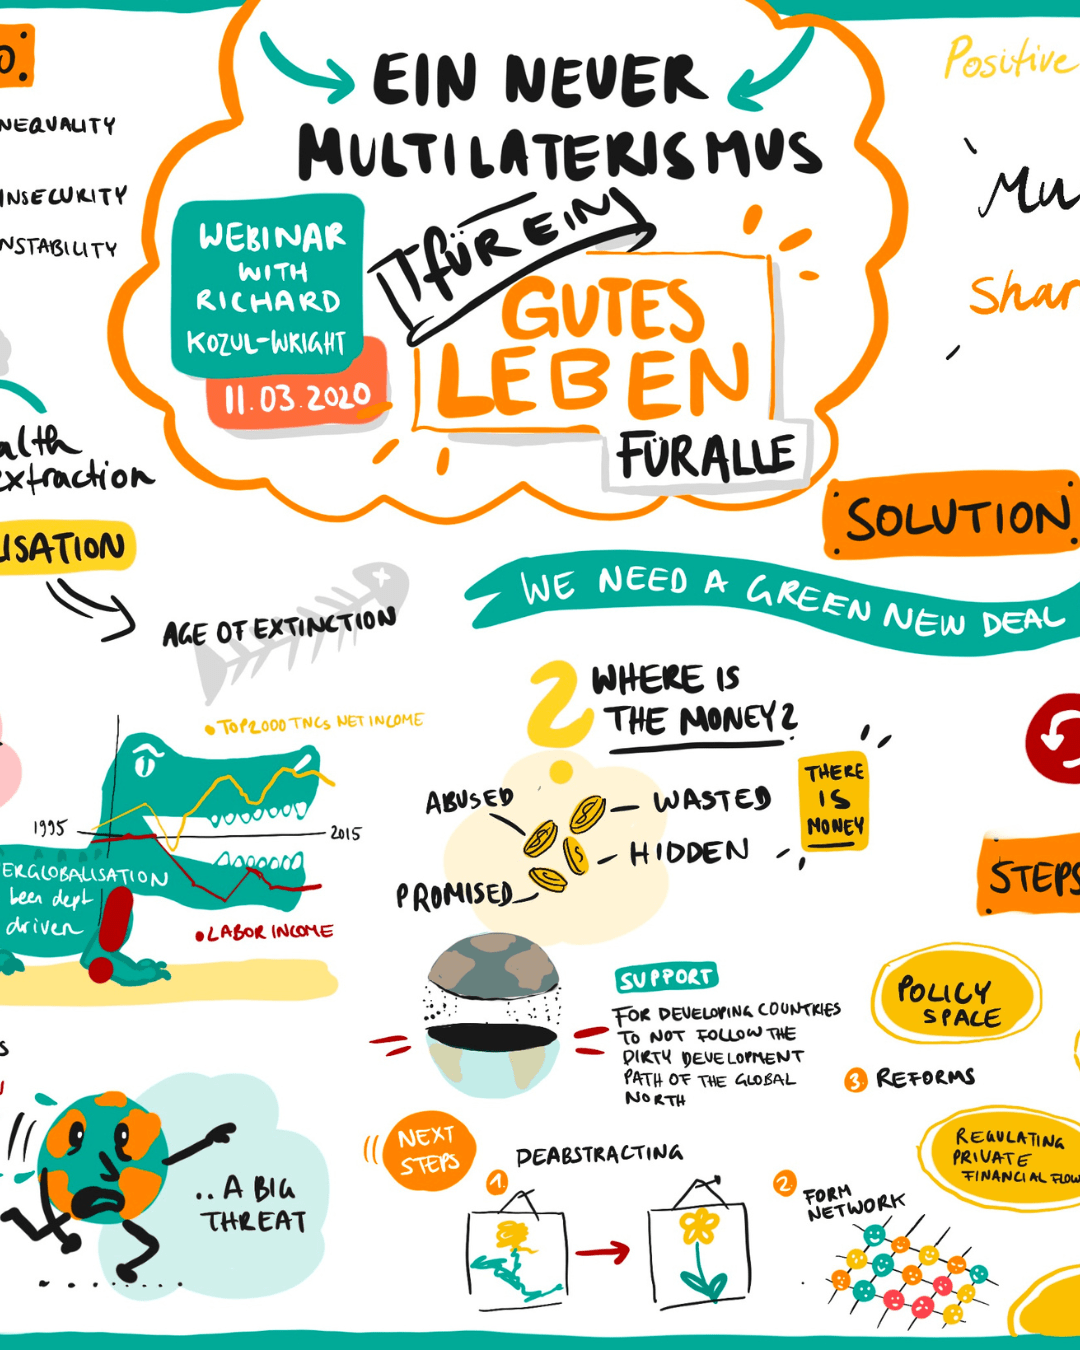 EIN NEUER
MULTILATERISMUS
FÜR EIN
GUTES
LEBEN
FÜR ALLE
WEBINAR
WITH
RICHARD
KOZUL-WRIGHT
11.03.2020
O
NEQUALITY
INSECURITY
NSTABILITY
alth
extraction
LISATION
AGE OF EXTINCTION
Positive
Mu
Shar
SOLUTION
WE NEED A GREEN NEW DEAL
WHERE IS
THE MONEY?
ABUSED
WASTED
HIDDEN
PROMISED
THERE
IS
MONEY
TOP 2000 TNCs NET INCOME
1995
2015
ERGLOBALISATION
been dept
driven
LABOR INCOME
SUPPORT
FOR DEVELOPING COUNTRIES
TO NOT FOLLOW THE
DIRTY DEVELOPMENT
PATH OF THE GLOBAL
NORTH
STEPS
POLICY
SPACE
3. REFORMS
REGULATING
PRIVATE
FINANCIAL FLOW
S
.. A BIG
THREAT
NEXT
STEPS
1 DEABSTRACTING
2 FORM
NETWORK